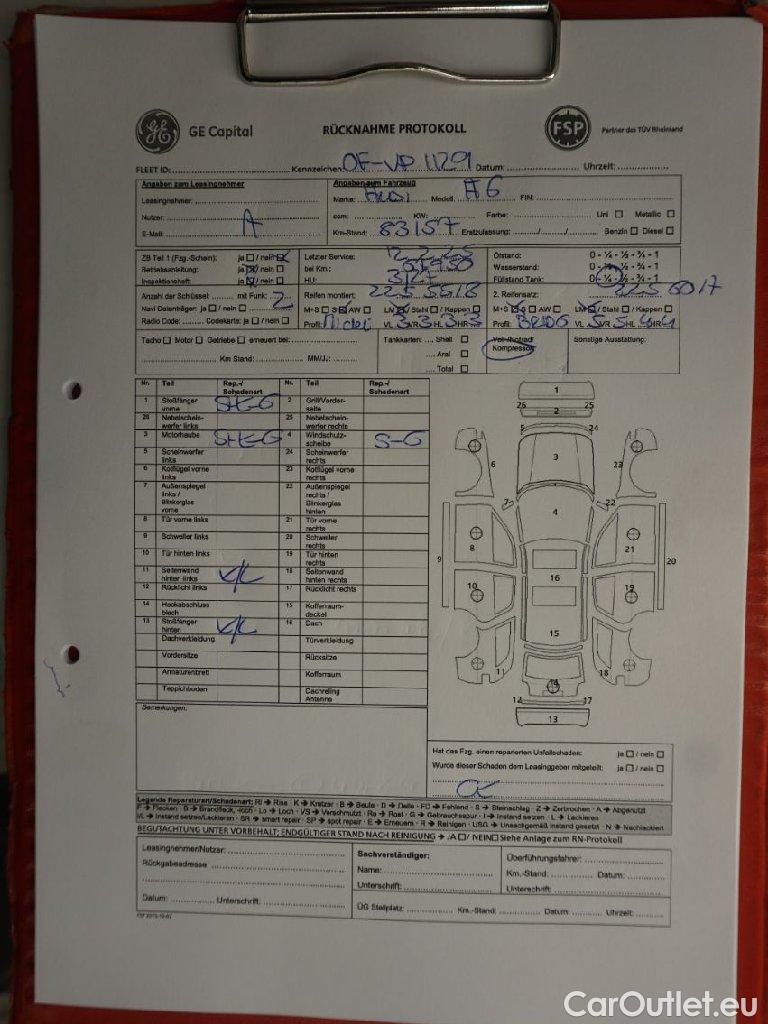 GE Capital
RÜCKNAHME PROTOKOLL
FSP
Partner des TÜV Rheinland
FLEET ID: Kennzeichen OF-VP 1129 Datum: Uhrzeit:
Angaben zum Leasingnehmer
Leasingnehmer:
Nutzer: A
E-Mail:
Angaben zum Fahrzeug
Name: AUDI Modell: A6 FIN:
ccm: KW: Farbe: Uni Metallic
Km-Stand: 83157 Erstzulassung: Benzin Diesel
ZB Teil 1 (Fzg.-Schein): ja / nein
Betriebsanleitung: ja / nein
Inspektionsheft ja / nein
Letzer Service:
bei Km.:
HU: 3/27
Ölstand: 0 - ¼ - ½ - ¾ - 1
Wasserstand: 0 - ¼ - ½ - ¾ - 1
Füllstand Tank: 0 - ¼ - ½ - ¾ - 1
Anzahl der Schlüssel mit Funk: 2
Navi Datenträger: ja / nein
Radio Code: Codekarte: ja / nein
Reifen montiert: 225 55 18
M+S S AW LM / Stahl / Kappen
Profil: VL 3 VR 3 HL 3 HR 3
2. Reifensatz: 225 60 17
M+S S AW LM / Stahl / Kappen
Profil: VL 5 VR 5 HL 4 HR 4
Tacho Motor Getriebe erneuert bei:
Km Stand: MM/J.:
Tankkarten: Shell
Aral
Total
Kompressor
Sonstige Ausstattung:
Nr. Teil Rep.-/ Schadenart Nr. Teil Rep.-/ Schadenart
1 Stoßfänger vorne StE-G 2 Grill/Vorderseite
26 Nebelscheinwerfer links 25 Nebelscheinwerfer rechts
3 Motorhaube StE-G 4 Windschutzscheibe S-G
5 Scheinwerfer links 24 Scheinwerfer rechts
6 Kotflügel vorne links 23 Kotflügel vorne rechts
7 Außenspiegel links / Blinkerglas vorne 22 Außenspiegel rechts / Blinkerglas hinten
8 Tür vorne links 21 Tür vorne rechts
9 Schweller links 20 Schweller rechts
10 Tür hinten links 19 Tür hinten rechts
11 Seitenwand hinten links K/L 18 Seitenwand hinten rechts
12 Rücklicht links 17 Rücklicht rechts
14 Heckabschlussblech 15 Kofferraumdeckel
13 Stoßfänger hinten K/L 16 Dach
Dachverkleidung Türverkleidung
Vordersitze Rücksitze
Armaturenbrett Kofferraum
Teppichboden Dachreling Antenne
Bemerkungen:
1
26 25
2
5 24
3
6 23
7 22
4
8 21
9 20
16
10 19
15
11 18
14
12 17
13
Hat das Fzg. einen reparierten Unfallschaden: ja / nein
Wurde dieser Schaden dem Leasinggeber mitgeteilt: ja / nein
Legende Reparaturen/Schadenart: RI → Riss · K → Kratzer · B → Beule · D → Delle · FD → Fehlend · S → Steinschlag · Z → Zerbrochen · A → Abgenutzt
F → Flecken · G → Brandfleck, -loch · Lo → Loch · VS → Verschmutzt · Ro → Rost · G → Gebrauchsspur · I → Instand setzen · L → Lackieren
I/L → Instand setzen/Lackieren · SR → smart repair · SP → spot repair · E → Erneuern · R → Reinigen · USG → Unsachgemäß instand gesetzt · N → Nachlackiert
BEGUTACHTUNG UNTER VORBEHALT; ENDGÜLTIGER STAND NACH REINIGUNG → JA / NEIN Siehe Anlage zum RN-Protokoll
Leasingnehmer/Nutzer:
Rückgabeadresse
Datum: Unterschrift:
Sachverständiger:
Name:
Unterschrift:
Überführungsfahrer:
Km.-Stand: Datum:
Unterschrift
ÜG Stellplatz: Km.-Stand: Datum: Uhrzeit:
CarOutlet.eu